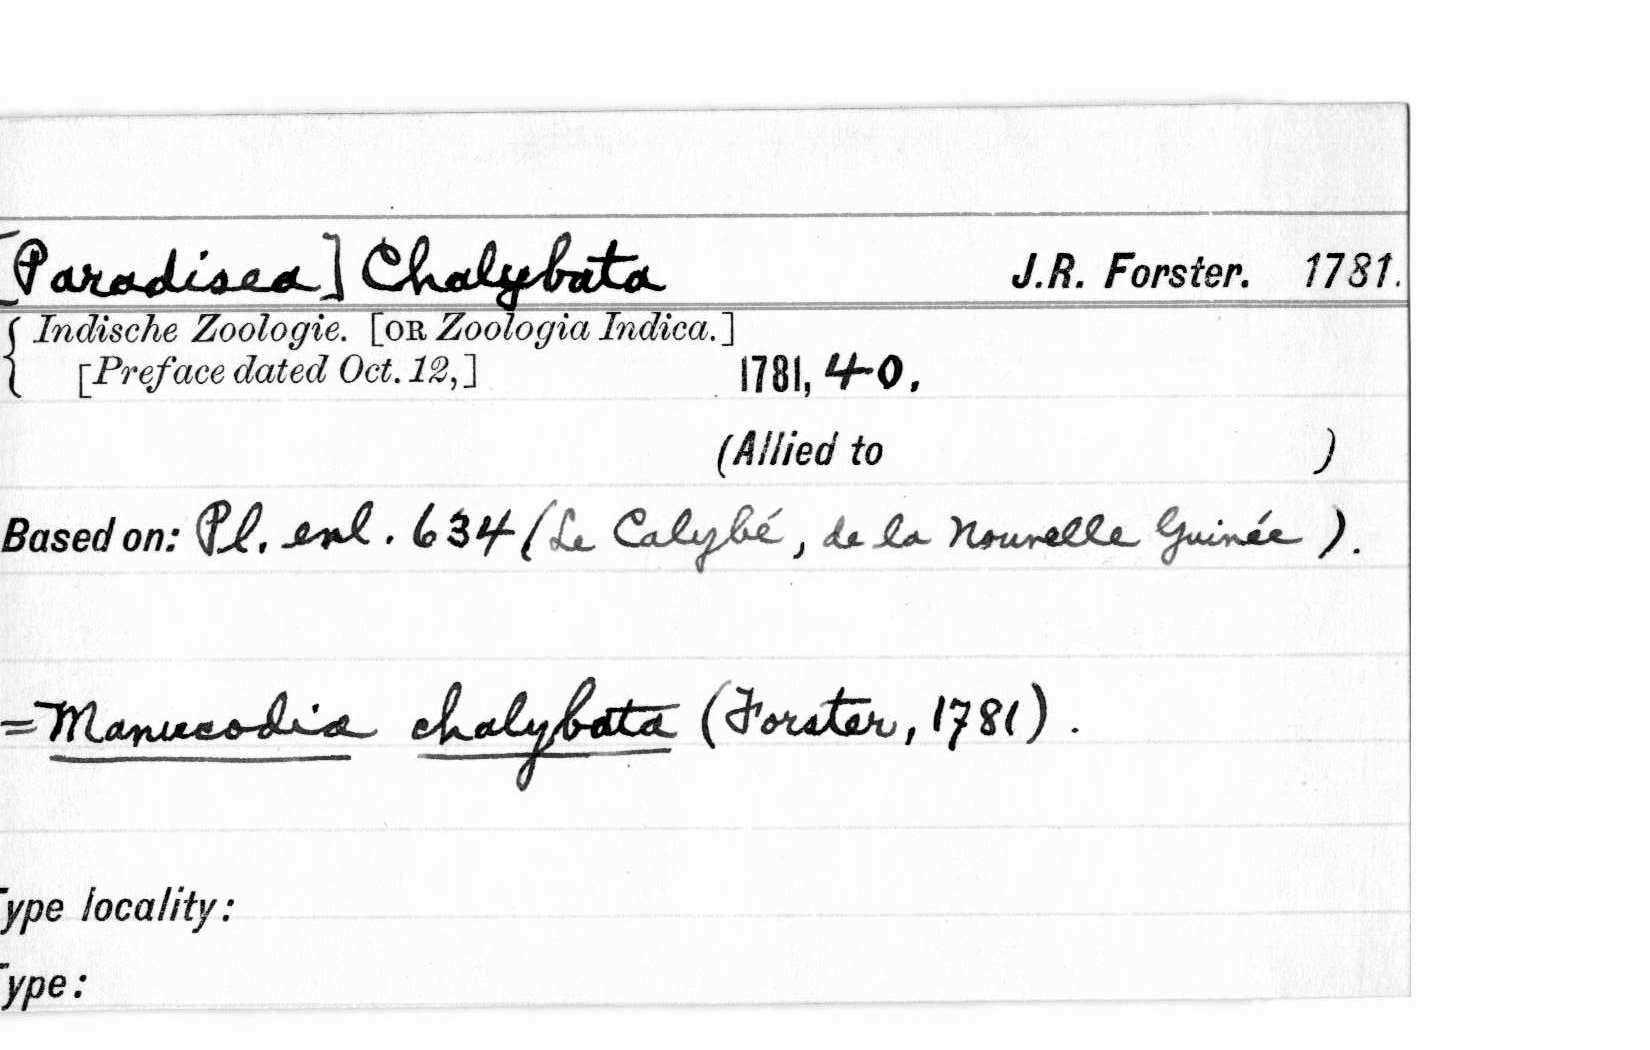 [Paradisea] Chalybata J.R. Forster. 1781.
Indische Zoologie. [OR Zoologia Indica.]
[Preface dated Oct. 12,] 1781, 40.
(Allied to )
Based on: Pl. enl. 634 (Le Calybé, de la Nouvelle Guinée ).
= Manucodia chalybata (Forster, 1781).
Type locality:
Type: